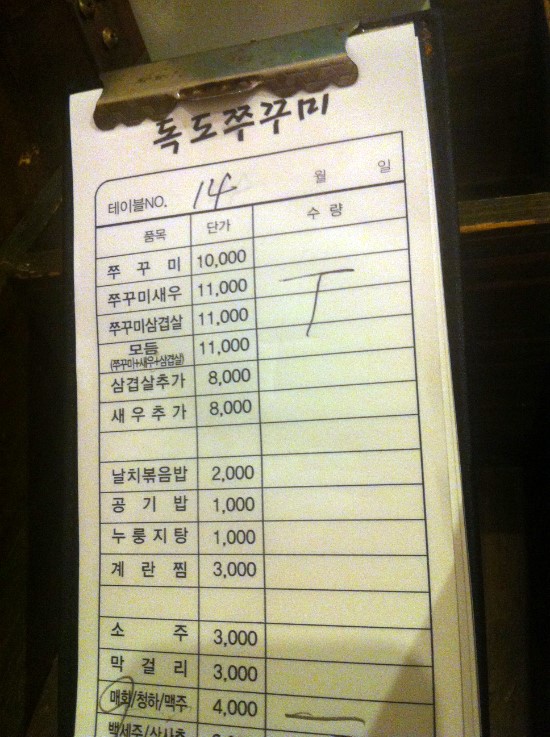 독도쭈꾸미
테이블NO. 14 월 일
품목 단가 수량
쭈꾸미 10,000
쭈꾸미새우 11,000
쭈꾸미삼겹살 11,000
모듬 11,000
(쭈꾸미+새우+삼겹살)
삼겹살추가 8,000
새우추가 8,000
날치볶음밥 2,000
공기밥 1,000
누룽지탕 1,000
계란찜 3,000
소주 3,000
막걸리 3,000
매화/청하/맥주 4,000
백세주/산사춘